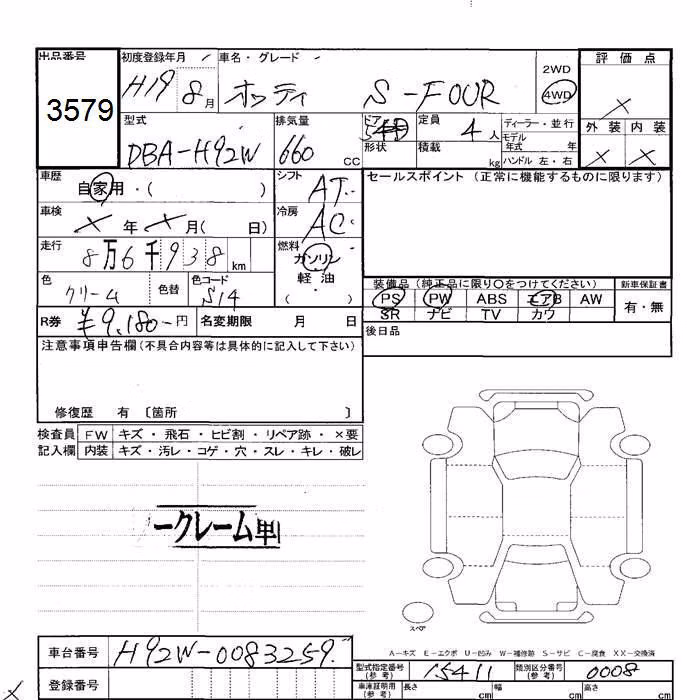 出品番号
3579
初度登録年月
H19 8月
車名・グレード
オッティ S-FOUR
2WD
4WD
評価点
×
外装 内装
× ×
型式
DBA-H92W
排気量
660 cc
ドア
形状
定員
4人
積載
kg
ディーラー・並行
モデル
年式 年
ハンドル 左・右
車歴
自家用・( )
シフト
AT
車検
×年×月( 日)
冷房
AC
走行
8万6千938km
燃料
ガソリン
軽油
( )
色
クリーム
色替
色コード
S14
R券
¥9,180-円
名変期限 月 日
セールスポイント(正常に機能するものに限ります)
装備品(純正品に限り○をつけてください)
PS PW ABS エアB AW
SR ナビ TV カワ
新車保証書
有・無
後日品
注意事項申告欄(不具合内容等は具体的に記入して下さい)
修復歴 有〔箇所 〕
検査員
記入欄
FW キズ・飛石・ヒビ割・リペア跡・×要
内装 キズ・汚レ・コゲ・穴・スレ・キレ・破レ
ークレーム車
スペア
A-キズ E-エクボ U-凹み W-補修跡 S-サビ C-腐食 XX-交換済
車台番号
H92W-0083259
登録番号
型式指定番号
(参考)
15411
類別区分番号
(参考)
0008
車庫証明用
(参考)
長さ cm
幅 cm
高さ cm
×